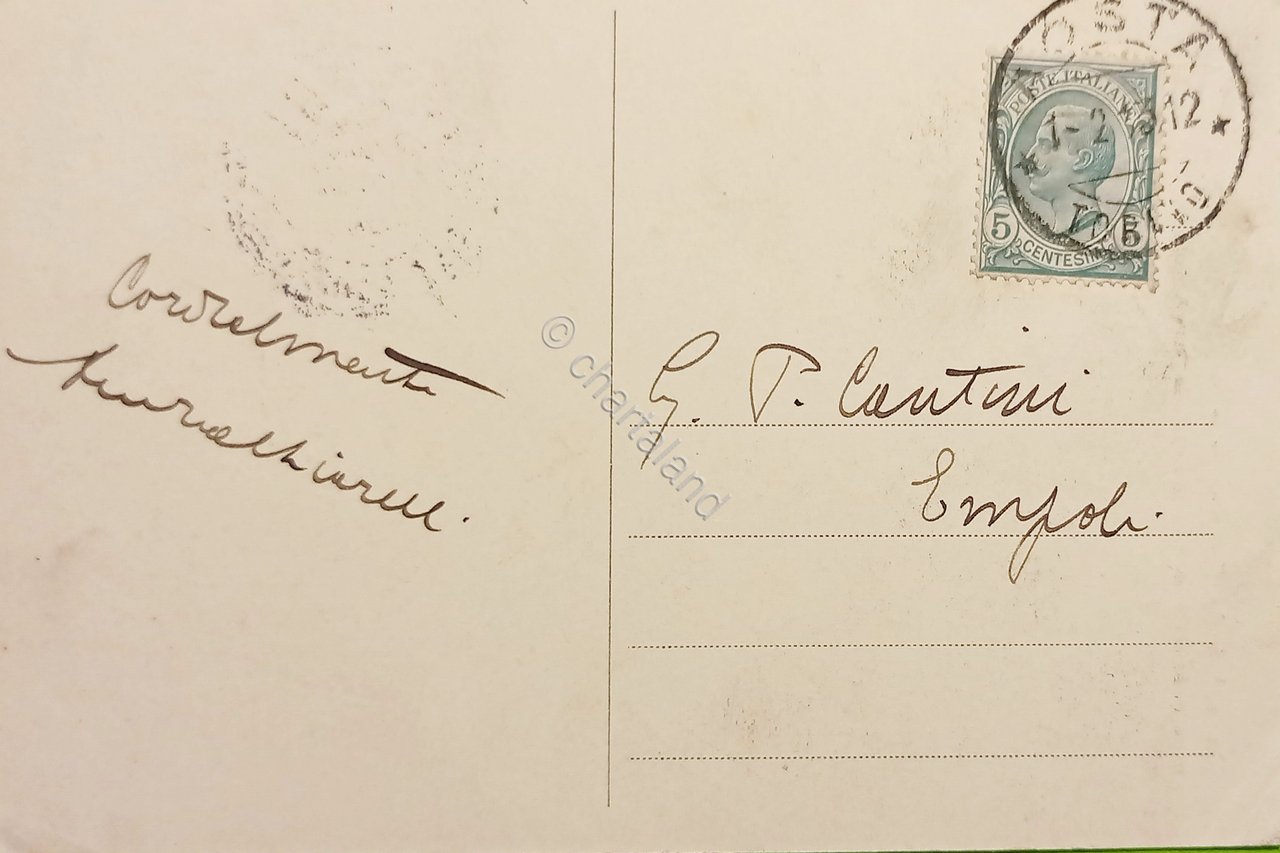 OSTA
POSTE ITALIANE
1-2 12
5 CENTESIMI 5
Cordialmente
G. P. Cantini
Empoli.
© chartaland